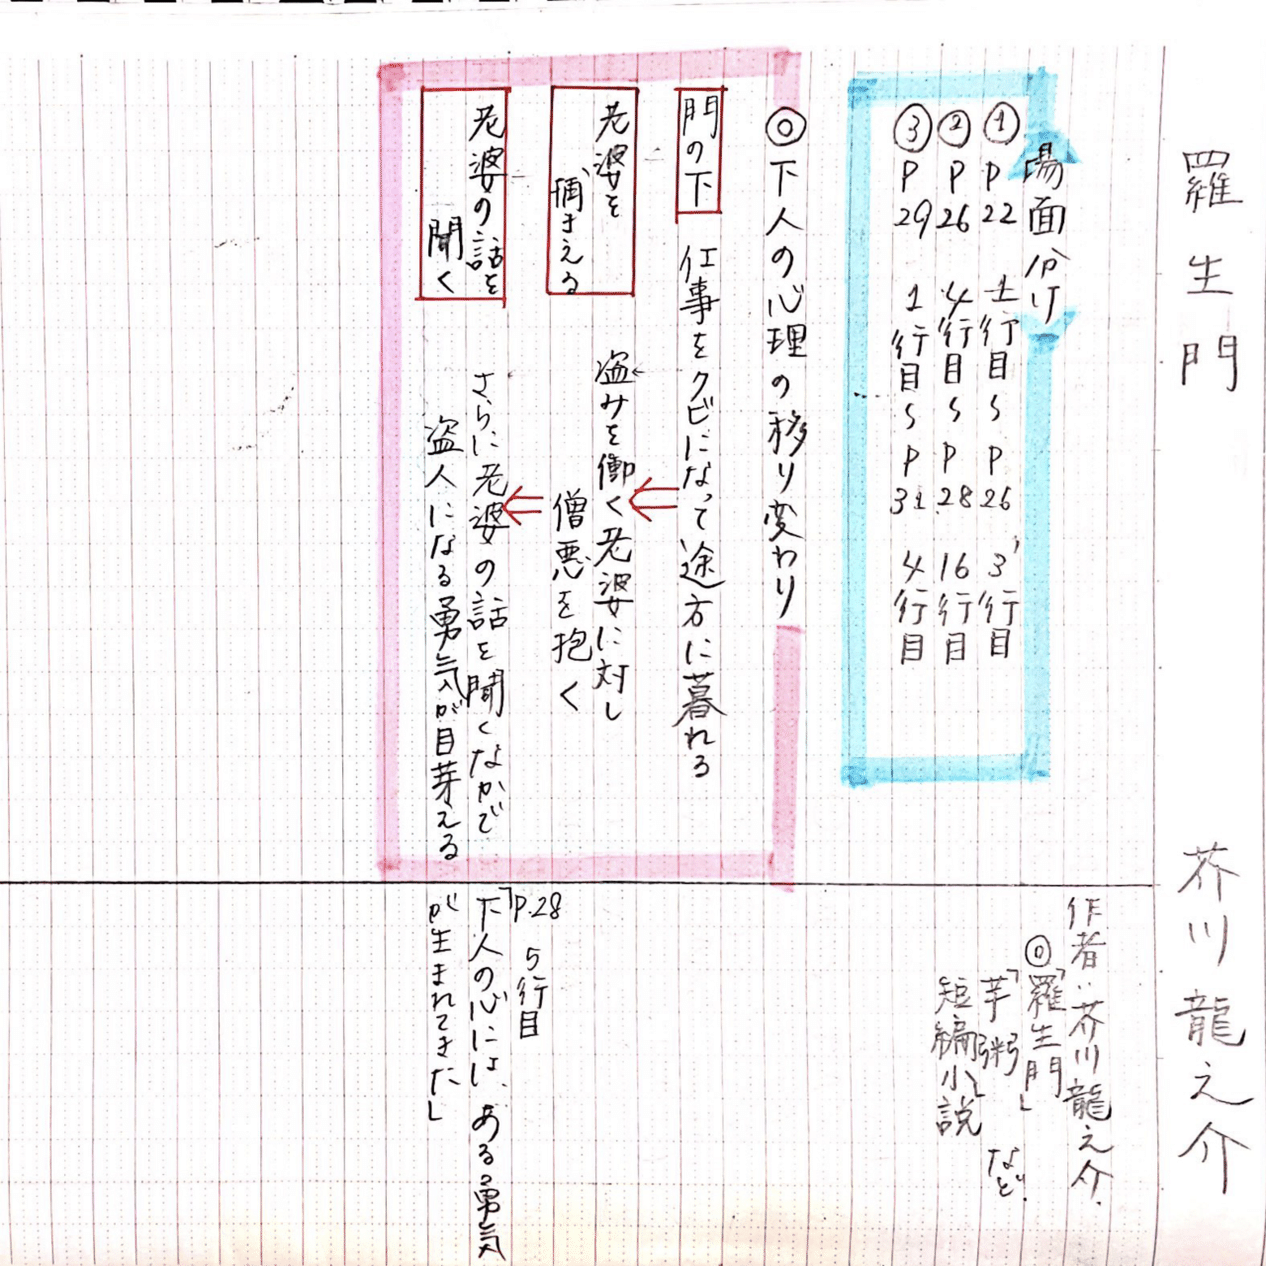 羅生門　芥川龍之介
場面分け
① P22 1行目〜P26 3行目
② P26 4行目〜P28 16行目
③ P29 1行目〜P31 4行目
◎下人の心理の移り変わり
門の下　仕事をクビになって途方に暮れる
老婆を
捕まえる
盗みを働く老婆に対し
僧悪を抱く
老婆の話を
聞く
さらに老婆の話を聞くなかで
盗人になる勇気が目芽える
作者:芥川龍之介
◎「羅生門」
「芋粥」など
短編小説
P.28 5行目
「下人の心には、ある勇気
が生まれてきた」